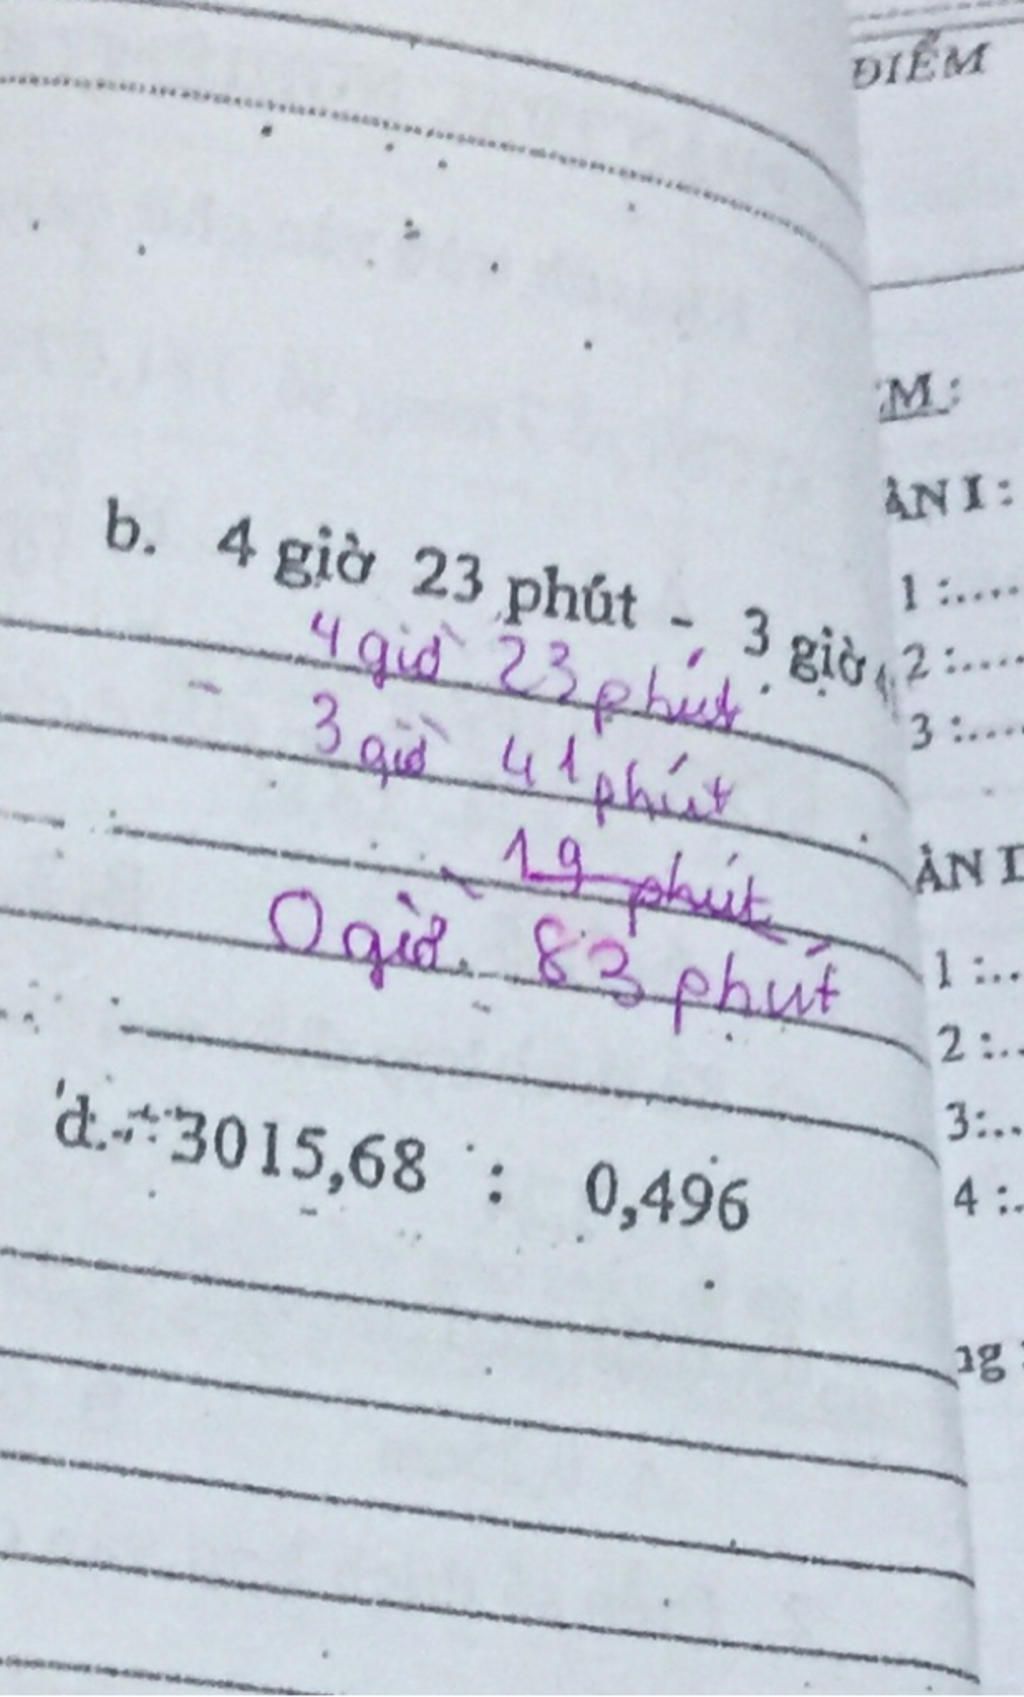 ĐIỂM
M :
ẦN I :
1 :....
2 :....
3 :....
b. 4 giờ 23 phút - 3 giờ
4 giờ 23 phút
- 3 giờ 41 phút
19 phút
0 giờ 83 phút
ẦN I
1 :...
2 :...
3:...
4 :..
d. 3015,68 : 0,496